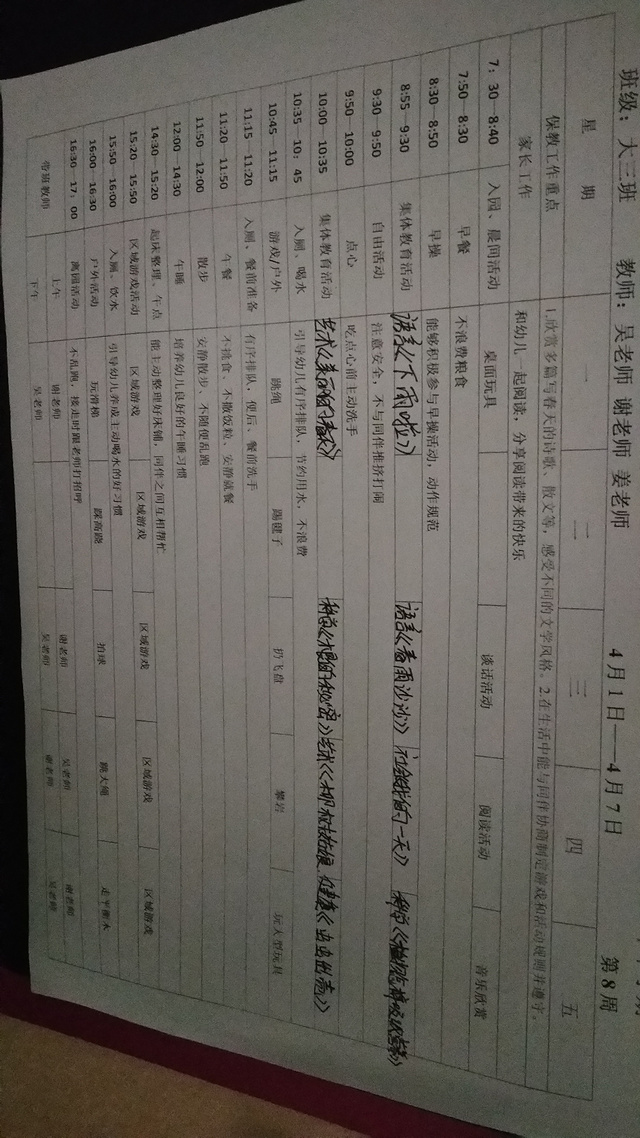 班级：大三班 教师：吴老师 谢老师 姜老师 4月1日——4月7日 第8周
星 期 一 二 三 四 五
保教工作重点 1.欣赏多篇写春天的诗歌、散文等，感受不同的文学风格。2.在生活中能与同伴协商制定游戏和活动规则并遵守。
家长工作 和幼儿一起阅读，分享阅读带来的快乐
7：30—8:40 入园、晨间活动 桌面玩具 谈话活动 阅读活动 音乐欣赏
7:50—8:30 早餐 不浪费粮食
8:30—8:50 早操 能够积极参与早操活动，动作规范
8:55—9:30 集体教育活动 语言《下雨啦》 语言《春雨沙沙》 的一天》 科学
9:30—9:50 自由活动 注意安全，不与同伴推挤打闹
9:50—10:00 点心 吃点心前主动洗手
10:00—10:35 集体教育活动 艺术《美丽的春天》 科学 的秘密》 健康
10:35—10：45 入厕、喝水 引导幼儿有序排队，节约用水，不浪费
10:45—11:15 游戏/户外 跳绳 踢毽子 扔飞盘 攀岩 玩大型玩具
11:15—11:20、 入厕、餐前准备 有序排队，便后、餐前洗手
11:20—11:50 午餐 不挑食、不撒饭粒、安静就餐
11:50—12:00 散步 安静散步、不随便乱跑
12:00—14:30 午睡 培养幼儿良好的午睡习惯
14:30—15:20 起床整理、午点 能主动整理好床铺，同伴之间互相帮忙
15:20—15:50 区域游戏活动 区域游戏 区域游戏 区域游戏 区域游戏 区域游戏
15:50—16:00 入厕、饮水 引导幼儿养成主动喝水的好习惯
16:00—16:30 户外活动 玩滑梯 踩高跷 拍球 跳大绳 走平衡木
16:30—17：00 离园活动 不乱跑，接走时跟老师打招呼
带班教师 上午 谢老师 谢老师 吴老师 谢老师
下午 吴老师 吴老师 谢老师 吴老师